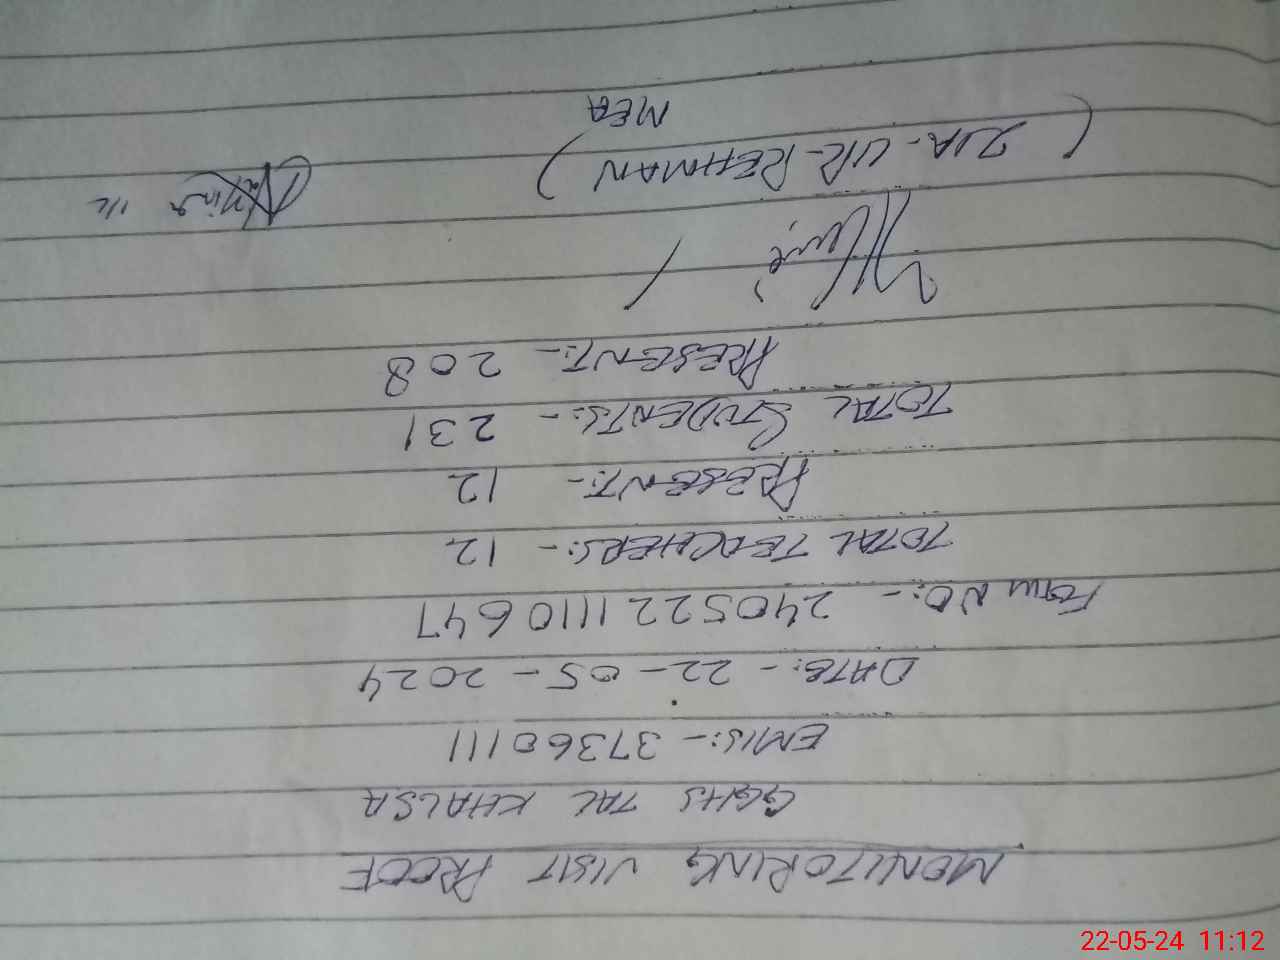 MONITORING VISIT PROOF
GGHS TAL KHALSA
EMIS:- 37360111
DATE:- 22-05-2024
Form NO:- 2405221110647
TOTAL TEACHERS:- 12
PRESENT:- 12
TOTAL STUDENTS:- 231
PRESENT:- 208
(ZIA-UR-REHMAN)
MEA
22-05-24 11:12